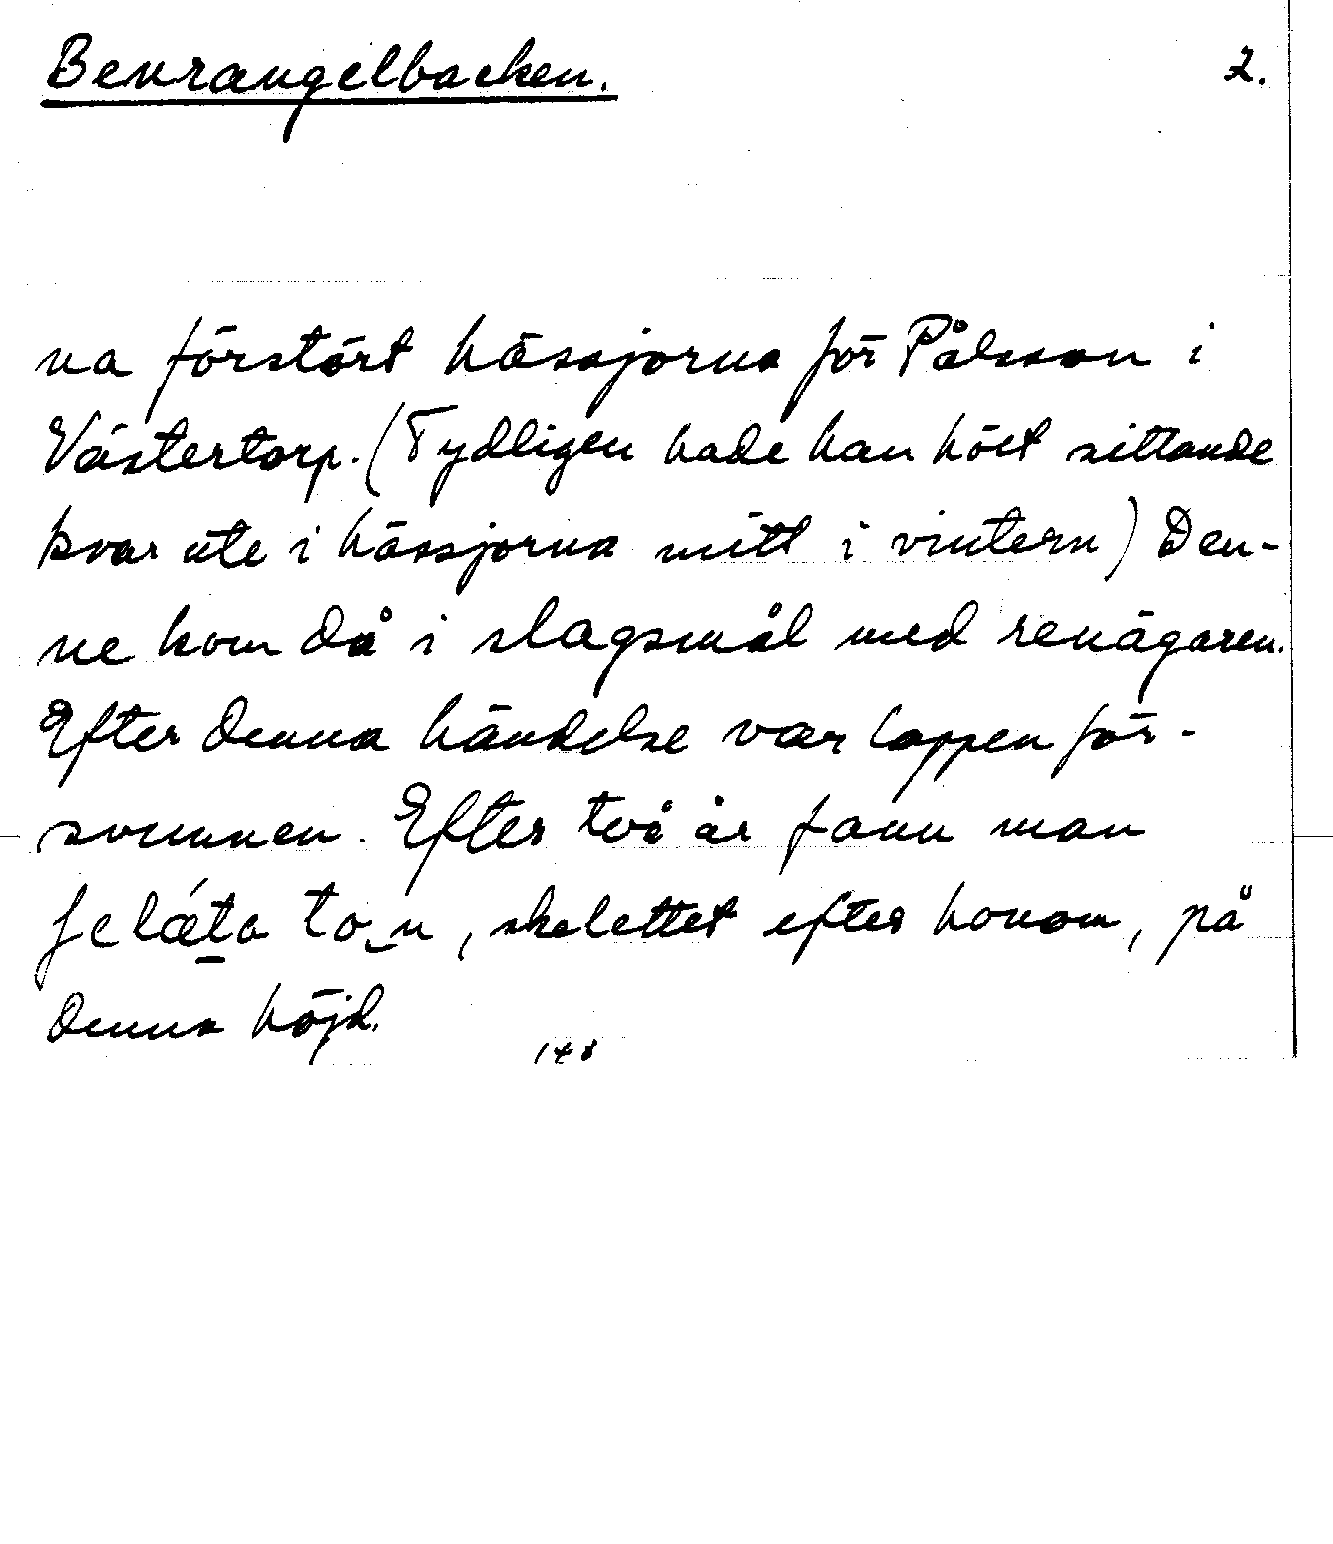 Benrangelbacken. 2.
na förstört hässjorna för Pålsson i
Västertorp. (Tydligen hade han höet sittande
kvar ute i hässjorna mitt i vintern) Den-
ne kom då i slagsmål med renägaren.
Efter denna händelse var lappen för-
svunnen. Efter två år fann man
skelettet efter honom, på
denna höjd.